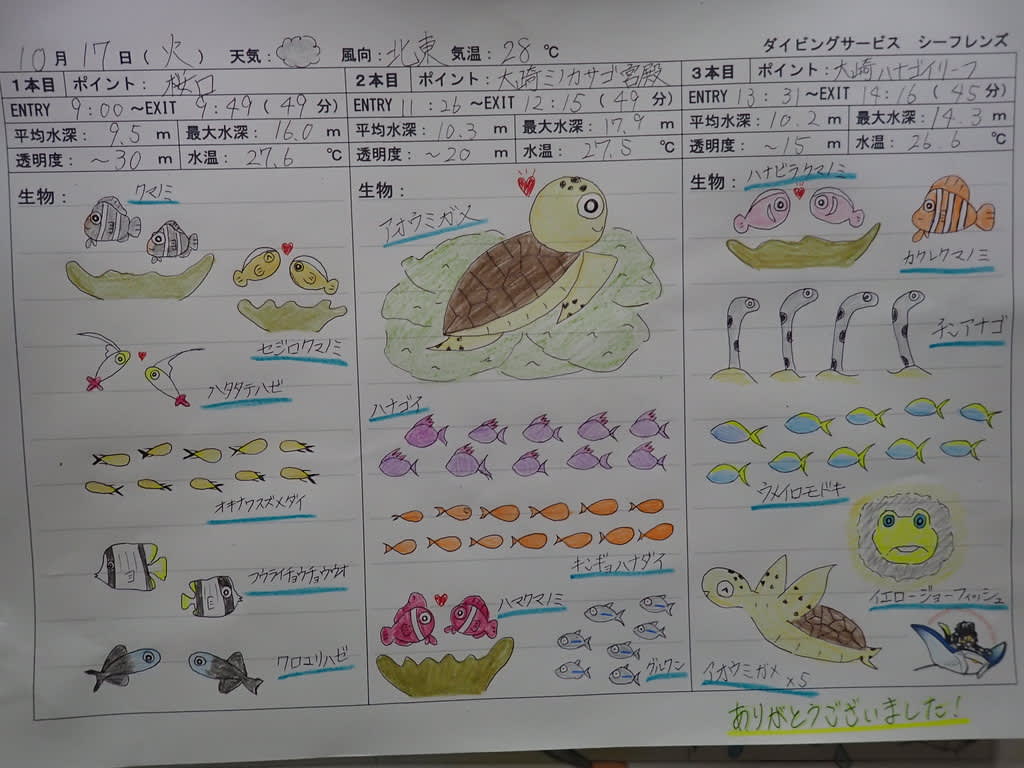 10月17日(火) 天気: 風向:北東 気温:28℃
ダイビングサービス シーフレンズ
1本目 ポイント:桜口
ENTRY 9:00~EXIT 9:49(49分)
平均水深: 9.5 m 最大水深: 16.0 m
透明度: ~30 m 水温: 27.6 ℃
生物:
クマノミ
セジロクマノミ
ハタタテハゼ
オキナワスズメダイ
フウライチョウチョウウオ
クロユリハゼ
2本目 ポイント:大崎ミノカサゴ宮殿
ENTRY 11:26~EXIT 12:15(49分)
平均水深: 10.3 m 最大水深: 17.9 m
透明度: ~20 m 水温: 27.5 ℃
生物:
アオウミガメ
ハナゴイ
キンギョハナダイ
ハマクマノミ
グルクン
3本目 ポイント:大崎ハナゴイリーフ
ENTRY 13:31~EXIT 14:16(45分)
平均水深: 10.2 m 最大水深: 14.3 m
透明度: ~15 m 水温: 26.6 ℃
生物:
ハナビラクマノミ
カクレクマノミ
チンアナゴ
ウメイロモドキ
イエロージョーフィッシュ
アオウミガメ ×5
ありがとうございました!